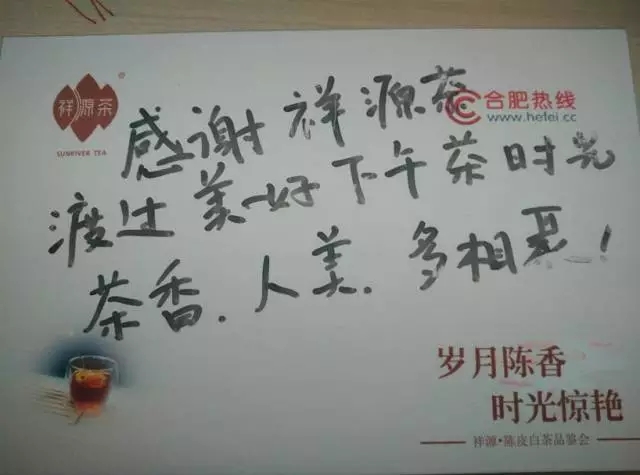 祥源茶
®
SUNRIVER TEA
合肥热线
www.hefei.cc
感谢祥源茶
渡过美好下午茶时光
茶香.人美.多相聚!
岁月陈香
时光惊艳
祥源·陈皮白茶品鉴会